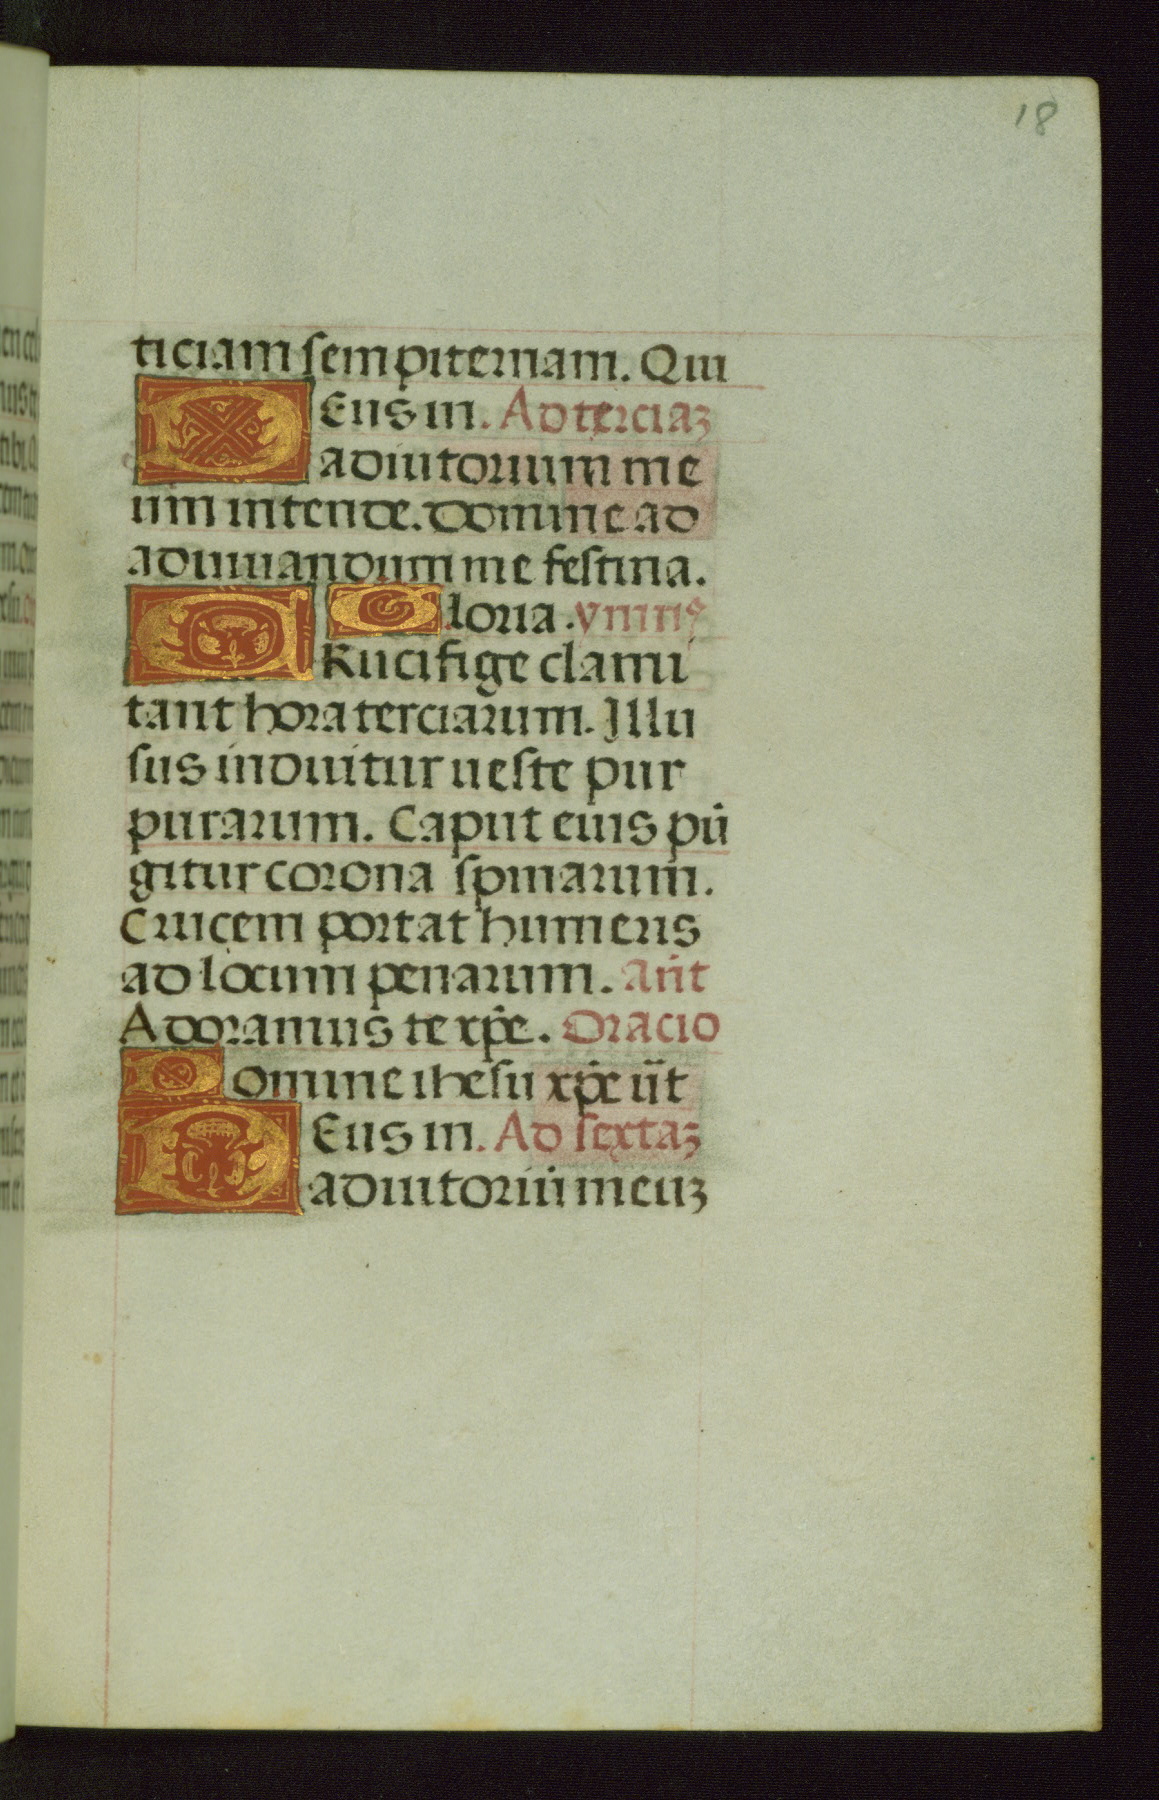 18
ticiam sempiternam. Qui
DEus in. Ad terciaz
adiutorium me
um intende. Domine ad
adiuuandum me festina.
Gloria. ymnus
CRucifige clami
tant hora terciarum. Illu
sus induitur ueste pur
purarum. Caput eius pū
gitur corona spinarum.
Crucem portat humeris
ad locum penarum. Añt
Adoramus te xp̄e. Oracio
Domine ihesu xp̄e ut
DEus in. Ad sextaz
adiutoriū meuz